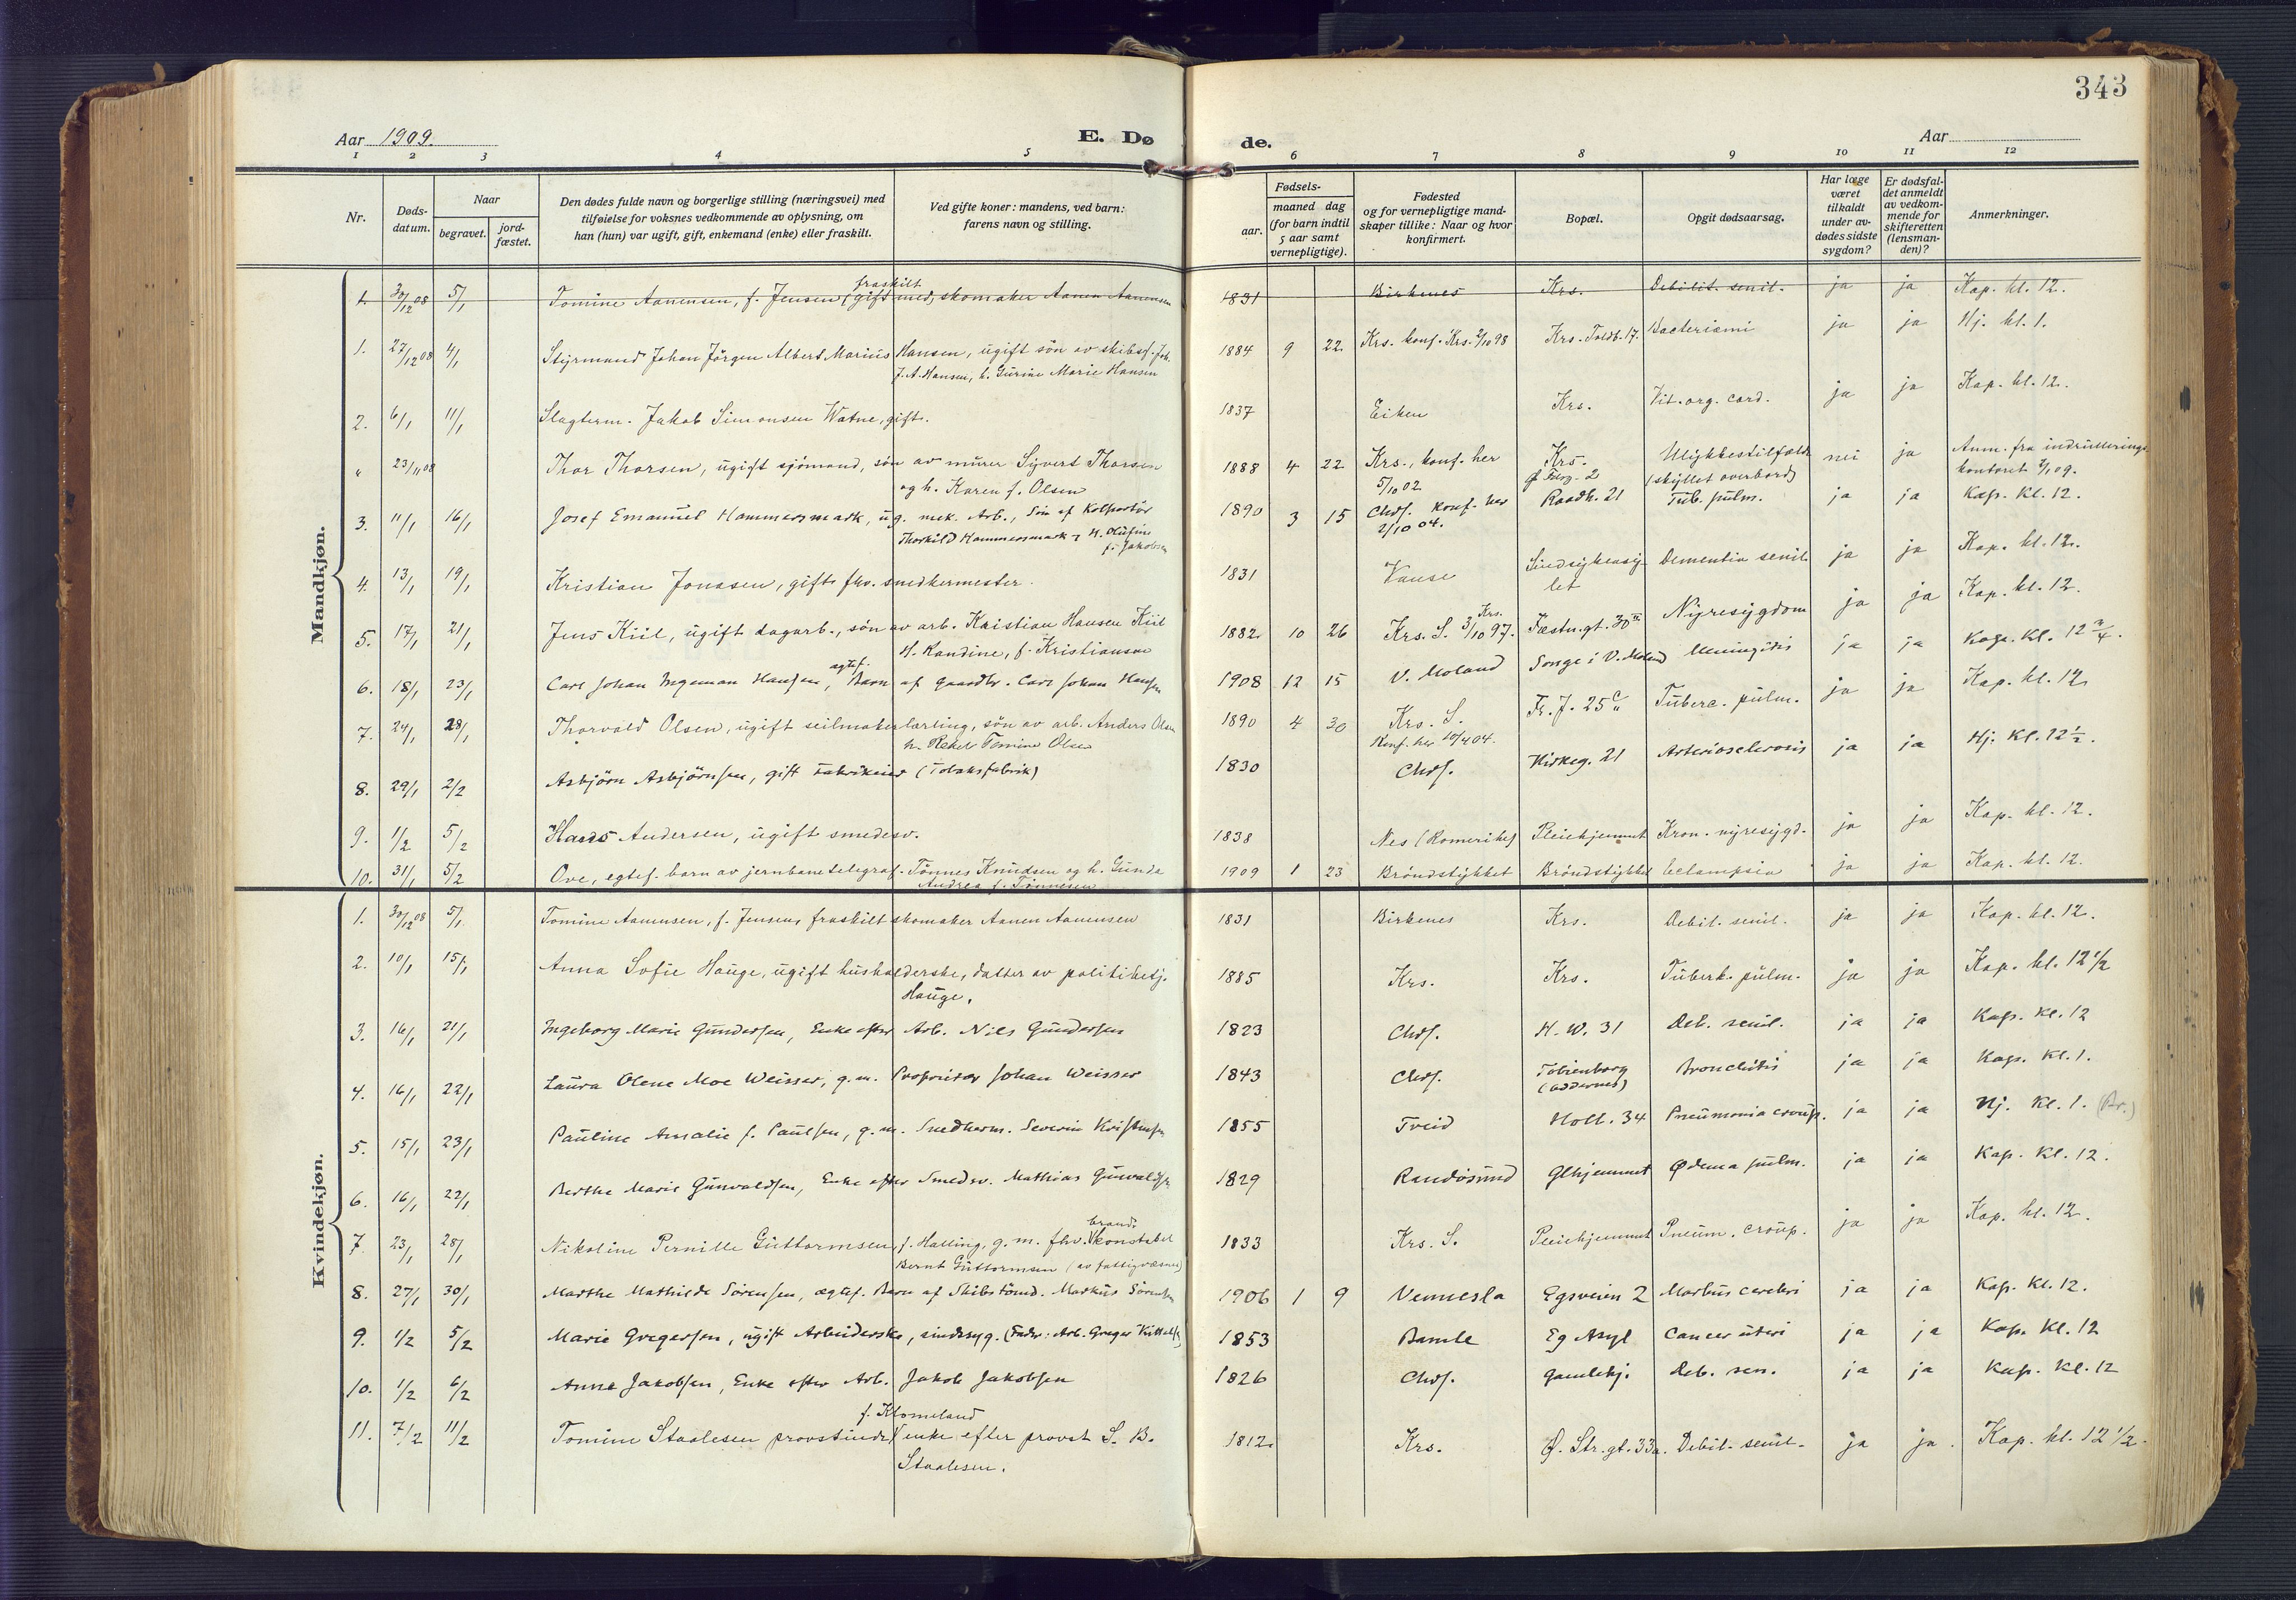 343
Aar 1909.
E. Døde.
Aar
1 2 3 4 5 6 7 8 9 10 11 12
Nr.
Døds-datum.
Naar
begravet.
jord-fæstet.
Den dødes fulde navn og borgerlige stilling (næringsvei) med
tilføielse for voksnes vedkommende av oplysning, om
han (hun) var ugift, gift, enkemand (enke) eller fraskilt.
Ved gifte koner: mandens, ved barn:
farens navn og stilling.
Fødsels-
aar.
maaned dag
(for barn indtil
5 aar samt
vernepligtige).
Fødested
og for vernepligtige mand-
skaper tillike: Naar og hvor
konfirmert.
Bopæl.
Opgit dødsaarsag.
Har læge
været
tilkaldt
under av-
dødes sidste
sygdom?
Er dødsfal-
det anmeldt
av vedkom-
mende for
skifteretten
(lensman-
den)?
Anmerkninger.
Mandkjøn.
fraskilt
1. 30/12 08 5/1 Tomine Aanensen, f. Jensen (gift med, skomaker Aanen Aanensen 1831 Birkenes Krs. Debilit. senil. ja ja Kap. kl. 12.
1. 27/12 08 4/1 Styrmand Johan Jörgen Albert Marius Hansen, ugift sön av skibsf. Joh. 1884 9 22 Krs. konf. Krs. 2/10 98 Krs. Toldb. 17. Bacteriæmi ja ja Hj. kl. 1.
J. A. Hansen, h. Gurine Marie Hansen
2. 6/1 11/1 Slagterm. Jakob Simonsen Watne, gift. 1837 Eiken Krs. Vit. org. cord. ja ja Kap. kl. 12.
" 23/11 08 Thor Thorsen, ugift sjömand, sön av murer Syvert Thorsen 1888 4 22 Krs., konf. her Krs. Ulykkestilfælde nei ja Anm. fra indrullerings
og h. Karen f. Olsen 5/10 02 2 (skyllet overbord) kontoret
3. 11/1 16/1 Josef Emanuel Hammersmark, ug. mek. Arb., Sön af Kolportör 1890 3 15 Chrsf. Konf. her Raadh. 21 Tub. pulm. ja ja Kap. Kl. 12.
Thorkild Hammersmark & H. Olufine 2/10 04.
f. Jakobsen
4. 13/1 19/1 Kristian Jonasen, gift, fhv. snedkermester. 1831 Vanse Sindsykeasy- Dementia senil. ja ja Kap. kl. 12.
let
5. 17/1 21/1 Jens Kiil, ugift dagarb., sön av arb. Kristian Hansen Kiil 1882 10 26 Krs. S. 3/10 97. Krs. Fæstn.gt. 30 Nyresygdom ja ja Kap. kl. 12.
H. Randine, f. Kristiansen
ægtef.
6. 18/1 23/1 Carl Johan Ingeman Hansen, Barn af gaardbr. Carl Johan Hansen 1908 12 15 V. Moland Songe i V. Moland Meningitis ja ja Kap. Kl. 12 3/4.
7. 24/1 28/1 Thorvald Olsen, ugift seilmakerlærling, sön av arb. Anders Olsen 1890 4 30 Krs. S. Fr. J. 25 Tuberc. pulm. ja ja Kap. kl. 12
h. Rakel Tomine Olsen Konf. her 10/4 04.
8. 29/1 2/2 Asbjörn Asbjörnsen, gift Fabrikeier (Tobaksfabrik) 1830 Chrsf. Kirkeg. 21 Arteriosclerosis ja ja Hj. Kl. 12 1/2.
9. 1/2 5/2 Hans Andersen, ugift smedesv. 1838 Nes (Romerike) Pleiehjemmet Kron. nyresygd. ja ja Kap. kl. 12.
10. 31/1 5/2 Ove, egtef. barn av jernbanetelegraf. Tönnes Knudsen og h. Gunda 1909 1 23 Bröndstykket Bröndstykket eclampsia ja ja Kap. kl. 12.
Andrea f. Tönnesen
Kvindekjøn.
1. 30/12 08 5/1 Tomine Aanensen, f. Jensen, fraskilt skomaker Aanen Aanensen 1831 Birkenes Krs. Debil. senil. ja ja Kap. kl. 12.
2. 10/1 15/1 Anna Sofie Hauge, ugift husholderske, datter av politibetj. 1885 Krs. Krs. Tuberk. pulm. ja ja Kap. kl. 12 1/2
Hauge.
3. 16/1 21/1 Ingeborg Marie Gundersen, Enke efter Arb. Nils Gundersen 1823 Chrsf. H. W. 31 Deb. senil. ja ja Kap. Kl. 12
4. 16/1 22/1 Laura Olene Moe Weisser, g. m. Proprietær Johan Weisser 1843 Chrsf. Tobienborg Bronchitis ja ja Kap. Kl. 1.
(Oddernes)
5. 15/1 23/1 Pauline Amalie f. Paulsen, g. m. Snedkerm. Severin Kristensen 1855 Tveid Holb. 34 Pneumonia croup. ja ja Hj. Kl. 1. (Br.)
6. 16/1 22/1 Berthe Marie Gunvaldsen, Enke efter Smedsv. Mathias Gunvaldsen 1829 Randösund Glhjemmet Ødema pulm. ja ja Kap. Kl. 12.
brand-
7. 23/1 28/1 Nikoline Pernille Guttormsen, f. Halling, g. m. fhv. konstabel 1833 Krs. S. Pleiehjemmet Pneum. croup. ja ja Kap. kl. 12.
Bernt Guttormsen (av fattigvæsnet)
8. 27/1 30/1 Marthe Mathilde Sörensen, ægtef. Barn af Skibstömd. Markus Sörensen 1906 1 9 Vennesla Egsveien 2 Morbus cerebri ja ja Kap. Kl. 12.
9. 1/2 5/2 Marie Gregersen, ugift Arbeiderske, sindssyg. (Fader: Arb. Greger Kittelsen) 1853 Bamle Eg Asyl Cancer uteri ja ja Kap. Kl. 12
10. 1/2 6/2 Anne Jakobsen, Enke efter Arb. Jakob Jakobsen 1826 Chrsf. Gamlehj. Deb. sen. ja ja Kap. Kl. 12
f. Klomeland
11. 7/2 11/2 Tomine Staalesen provstinde, enke efter provst S. B. 1812. Krs. Ø. Str. gt. 33a. Debil. senil. ja ja. Kap. kl. 12 1/2.
Staalesen.